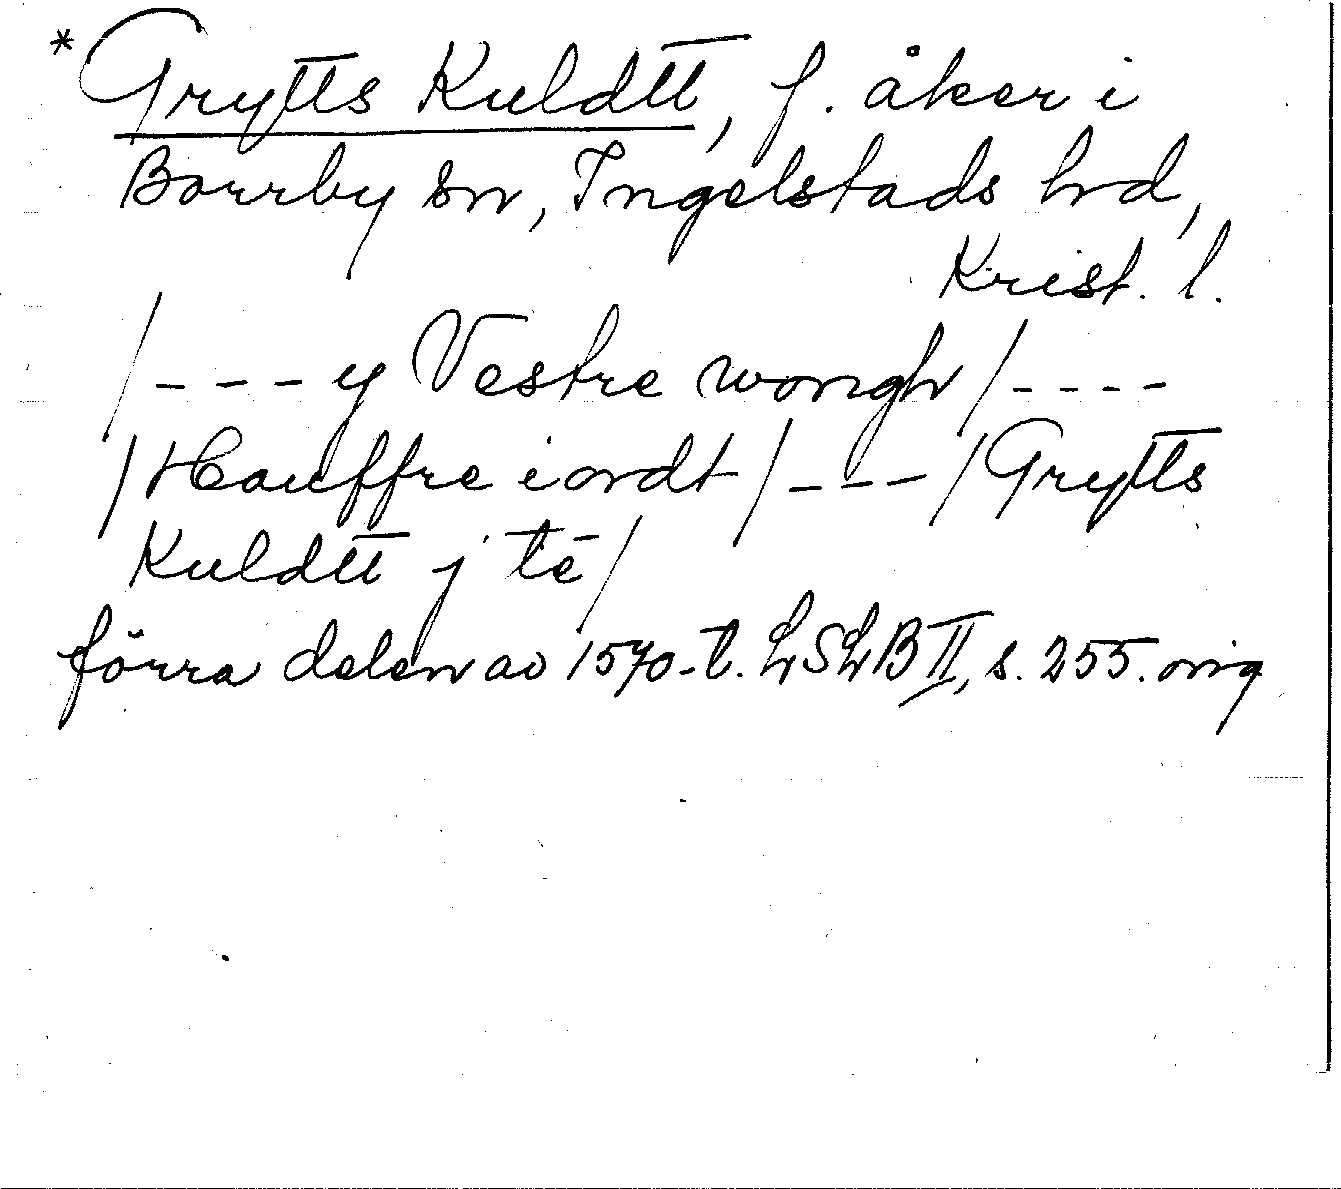 *Grytts Kuldtt, f. åker i
Borrby sn, Ingelstads hd,
Krist. l.
/---y Vestre wongh/----
/Hauffre iordt/---/Grytts
Kuldtt j tē/
förra delen av 1570-t. LSLB II, s. 255. orig